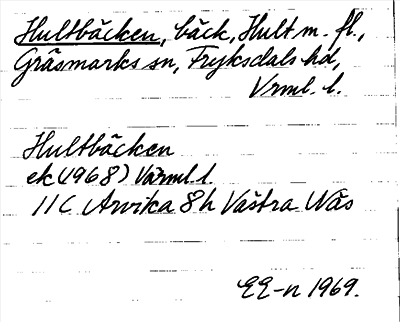 Hultbäcken, bäck, Hult m. fl.,
Gräsmarks sn, Fryksdals hd,
Vrml. l.
Hultbäcken
ek (1968) Värml. l.
11C Arvika 8h Västra Näs
EE-n 1969.